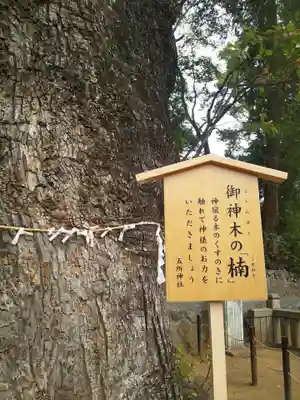 御神木の「楠」
神宿る木のくすのきに
触れて神様のお力を
いただきましょう
五所神社